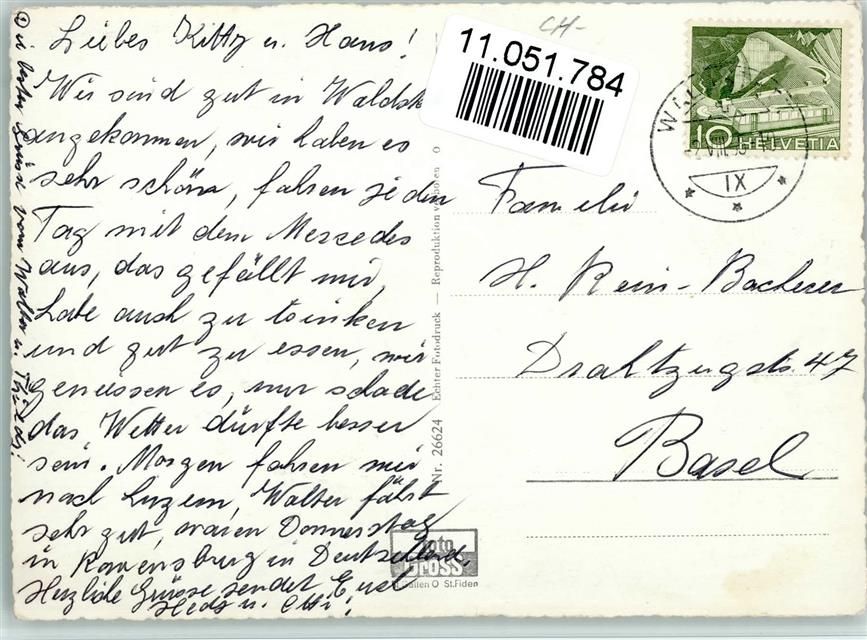 Liebes Kitty u. Hans!
Wir sind gut in
angekommen, wir haben es
sehr schön, fahren jeden
Tag mit dem Mercedes
aus, das gefällt mir,
habe auch zu trinken
und gut zu essen, wir
geniessen es, nur schade
das Wetter dürfte besser
sein. Morgen fahren wir
nach Luzern, Walter fährt
sehr gut, waren Donnerstag
in Ravensburg in Deutschland.
Herzliche Grüsse sendet Euch
Hedy u. Otti!
u. beste Grüsse vom Walter u.
CH-
11.051.784
10 HELVETIA
IX
Familie
H. Rein-Bacherer
Drahtzugstr. 47
Basel
Nr. 26624 Echter Fotodruck — Reproduktion verboten
Foto
GROSS
St. Gallen O St.Fiden